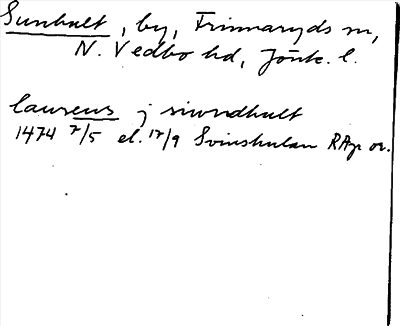 Sunhult, by, Frinnaryds sn,
N. Vedbo hd, Jönk. l.
laurens j siwndhult
1474 7/5 el. 17/9 Svinshulan RAp or.